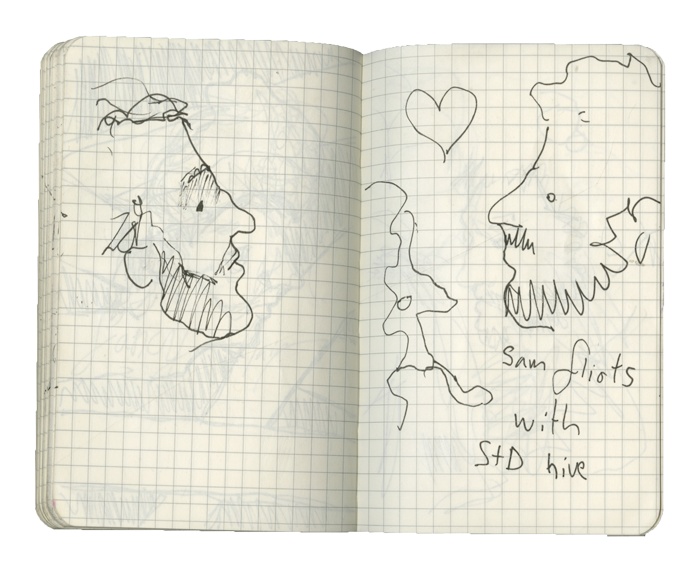 Sam fliots
with
StD hive